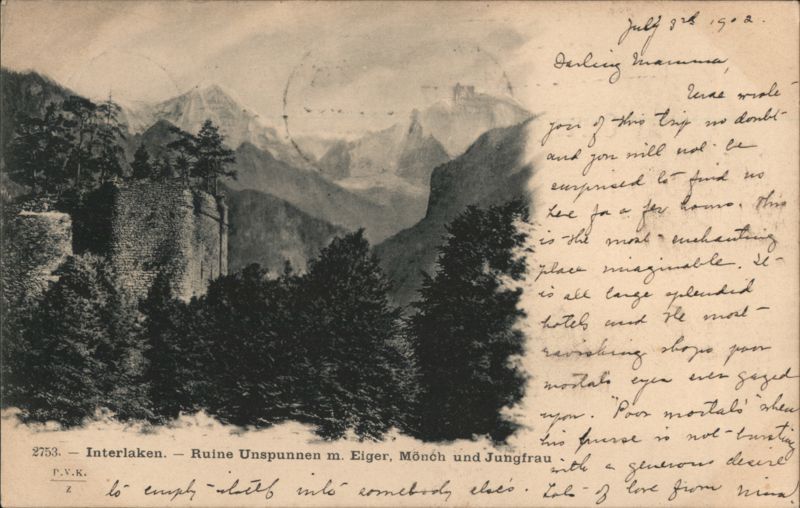 July 3rd 1902.
Darling Mamma,
wrote
you of this trip no doubt
and you will not be
surprised to find us
here for a few hours. This
is the most enchanting
place imaginable. It
is all large splendid
hotels and the most
ravishing shops poor
mortals eyes ever gazed
upon. "Poor mortals" when
his purse is not bursting
with a generous desire
to empty itself into somebody else's.
Lots of love from
2753. – Interlaken. – Ruine Unspunnen m. Eiger, Mönch und Jungfrau
P.V.K.
Z